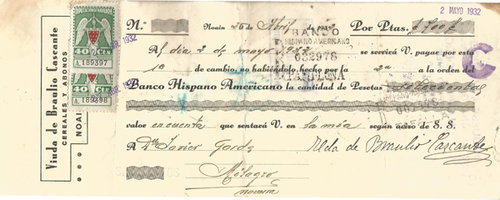 Viuda de Braulio Cascante
CEREALES Y ABONOS
NOAIN
40 CTS
A 189397
40 CTS
2 MAYO 1932
N.º
Noain 26 de Abril de
Por Ptas.
Al día 2 de mayo
se servirá V. pagar por esta
1ª de cambio, no habiéndolo hecho por la 2ª a la orden del
BANCO
HISPANO AMERICANO
632978
PAMPLONA
Banco Hispano Americano la cantidad de Pesetas setecientas
valor en cuenta que sentará V. en la mía según aviso de S. S.
A D. Javier
Milagro
Navarra
Vda de Braulio Cascante
C